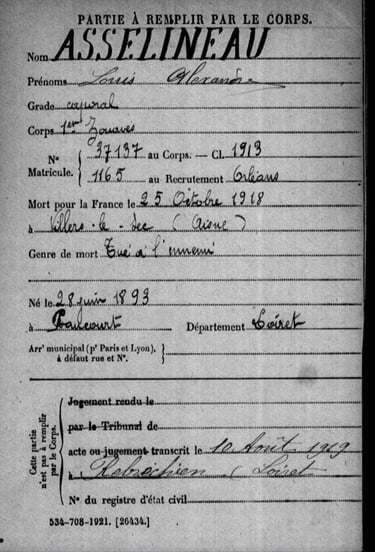 PARTIE À REMPLIR PAR LE CORPS.
Nom ASSELINEAU
Prénoms Louis Alexandre
Grade caporal
Corps 1er Zouaves
N° 37137 au Corps. — Cl. 1913
Matricule. 1165 au Recrutement Orléans
Mort pour la France le 25 Octobre 1918
à Villers-le-Sec (Aisne)
Genre de mort Tué à l'ennemi
Né le 28 juin 1893
à Département Loiret
Arrt municipal (pr Paris et Lyon),
à défaut rue et N°.
Cette partie n'est pas à remplir par le Corps.
Jugement rendu le
par le Tribunal de
acte ou jugement transcrit le 10 Août 1919
à Rebréchien (Loiret
N° du registre d'état civil
534-708-1921. [26434.]